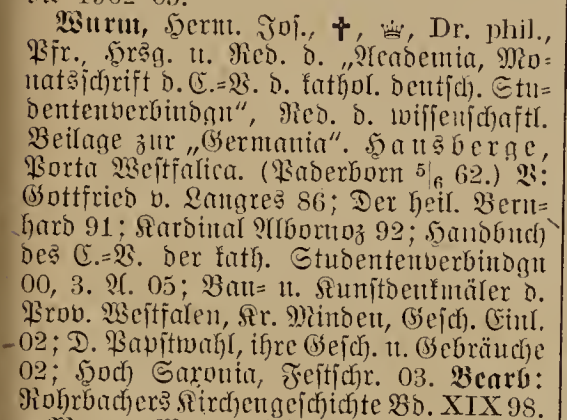 Wurm, Herm. Jos., ✝, ♕, Dr. phil.,
Pfr., Hrsg. u. Red. d. „Academia, Mo-
natsschrift d. C.-V. d. kathol. deutsch. Stu-
dentenverbindgn“, Red. d. wissenschaftl.
Beilage zur „Germania“. Hausberge,
Porta Westfalica. (Paderborn 5/6 62.) V:
Gottfried v. Langres 86; Der heil. Bern-
hard 91; Kardinal Albornoz 92; Handbuch
des C.-V. der kath. Studentenverbindgn
00, 3. A. 05; Bau- u. Kunstdenkmäler d.
Prov. Westfalen, Kr. Minden, Gesch. Einl.
02; D. Papstwahl, ihre Gesch. u. Gebräuche
02; Hoch Saxonia, Festschr. 03. Bearb:
Rohrbachers Kirchengeschichte Bd. XIX 98.